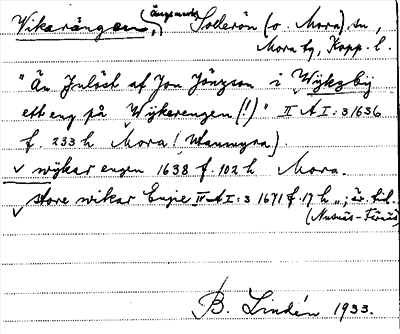 Vikarängen, (ängsmark) Sollerön (o. Mora) sn,
Mora tg, Kopp. l.
"Än Inlöst af Jon Jönsson i Wijkzbÿ
ett eng på Wijkerengen (!)" II A I: 3 1636
f. 233 h Mora (Wanmyra).
✓ wÿkar engen 1638 f. 102 h Mora.
✓ store wikar Engie II A I: 3 1671 f. 17 h „; är fil.
(Nusnäs-Färnäs)
B. Lindén 1933.